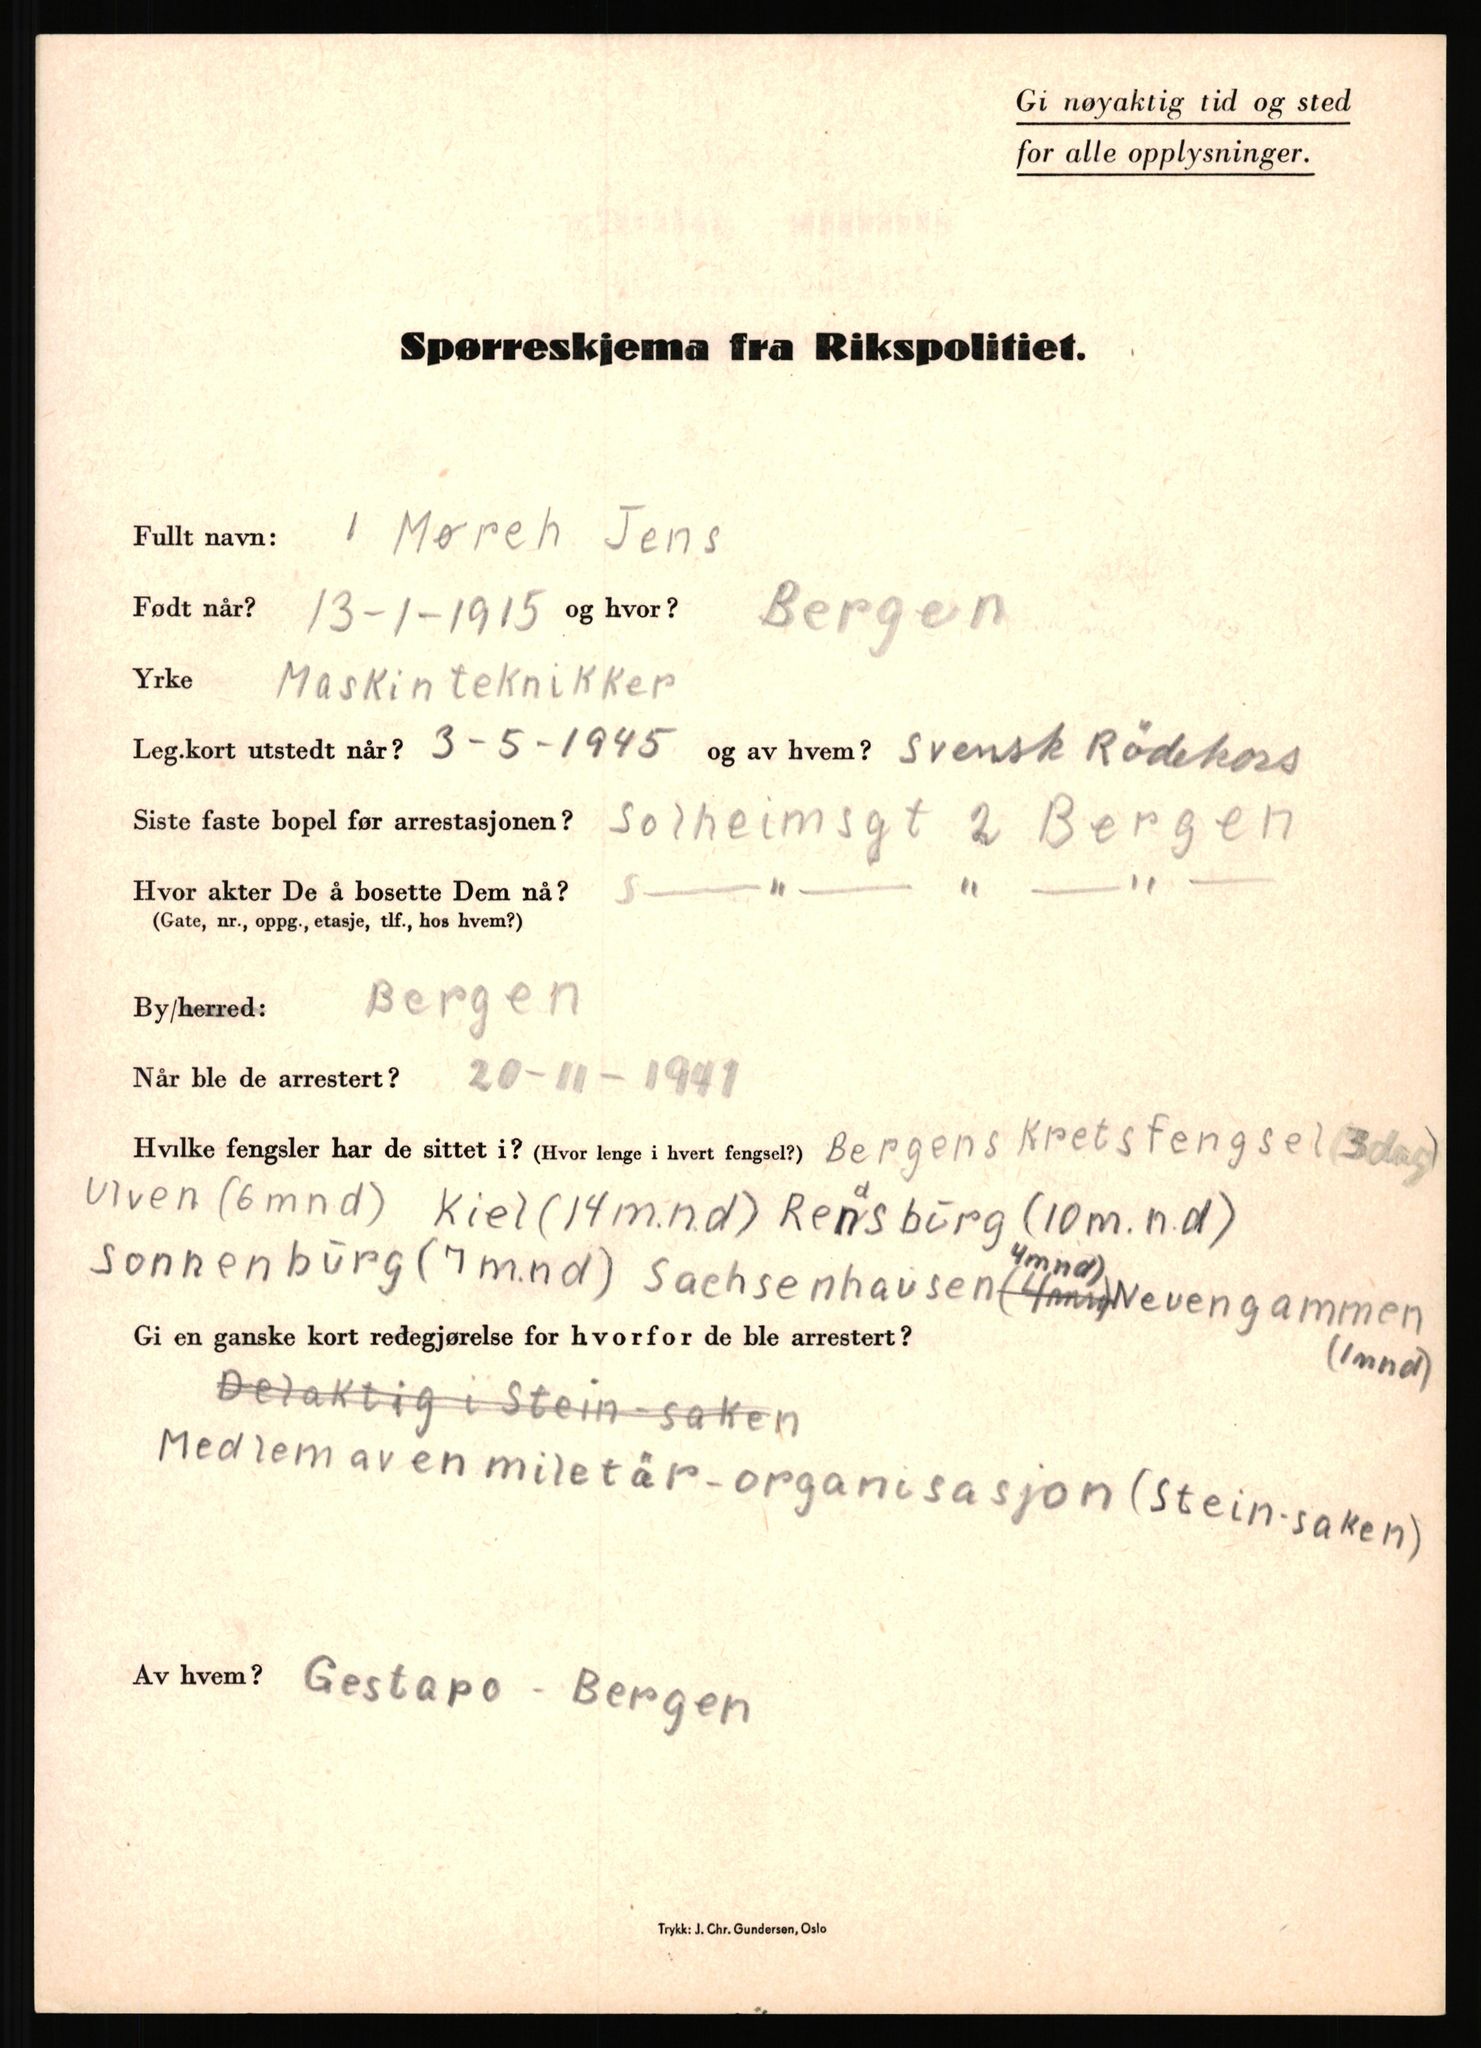 Gi nøyaktig tid og sted
for alle opplysninger.
Spørreskjema fra Rikspolitiet.
Fullt navn: Møreh Jens
Født når? 13-1-1915 og hvor? Bergen
Yrke Maskinteknikker
Leg.kort utstedt når? 3-5-1945 og av hvem? Svensk Rödekors
Siste faste bopel før arrestasjonen? Solheimsgt 2 Bergen
Hvor akter De å bosette Dem nå? S — " — " — " —
(Gate, nr., oppg., etasje, tlf., hos hvem?)
By/herred: Bergen
Når ble de arrestert? 20-11-1941
Hvilke fengsler har de sittet i? (Hvor lenge i hvert fengsel?) Bergens Kretsfengsel (3 dag)
Ulven (6mnd) Kiel (14 m.n.d) Rendsbūrg (10 m.n.d)
Sonnenbūrg (7 m.nd) Sachsenhausen (4mnd) Neuengammen
(1mnd)
Gi en ganske kort redegjørelse for hvorfor de ble arrestert?
Delaktig i Stein-saken
Medlem av en miletär-organisasjon (Stein-saken)
Av hvem? Gestapo - Bergen
Trykk: J. Chr. Gundersen, Oslo